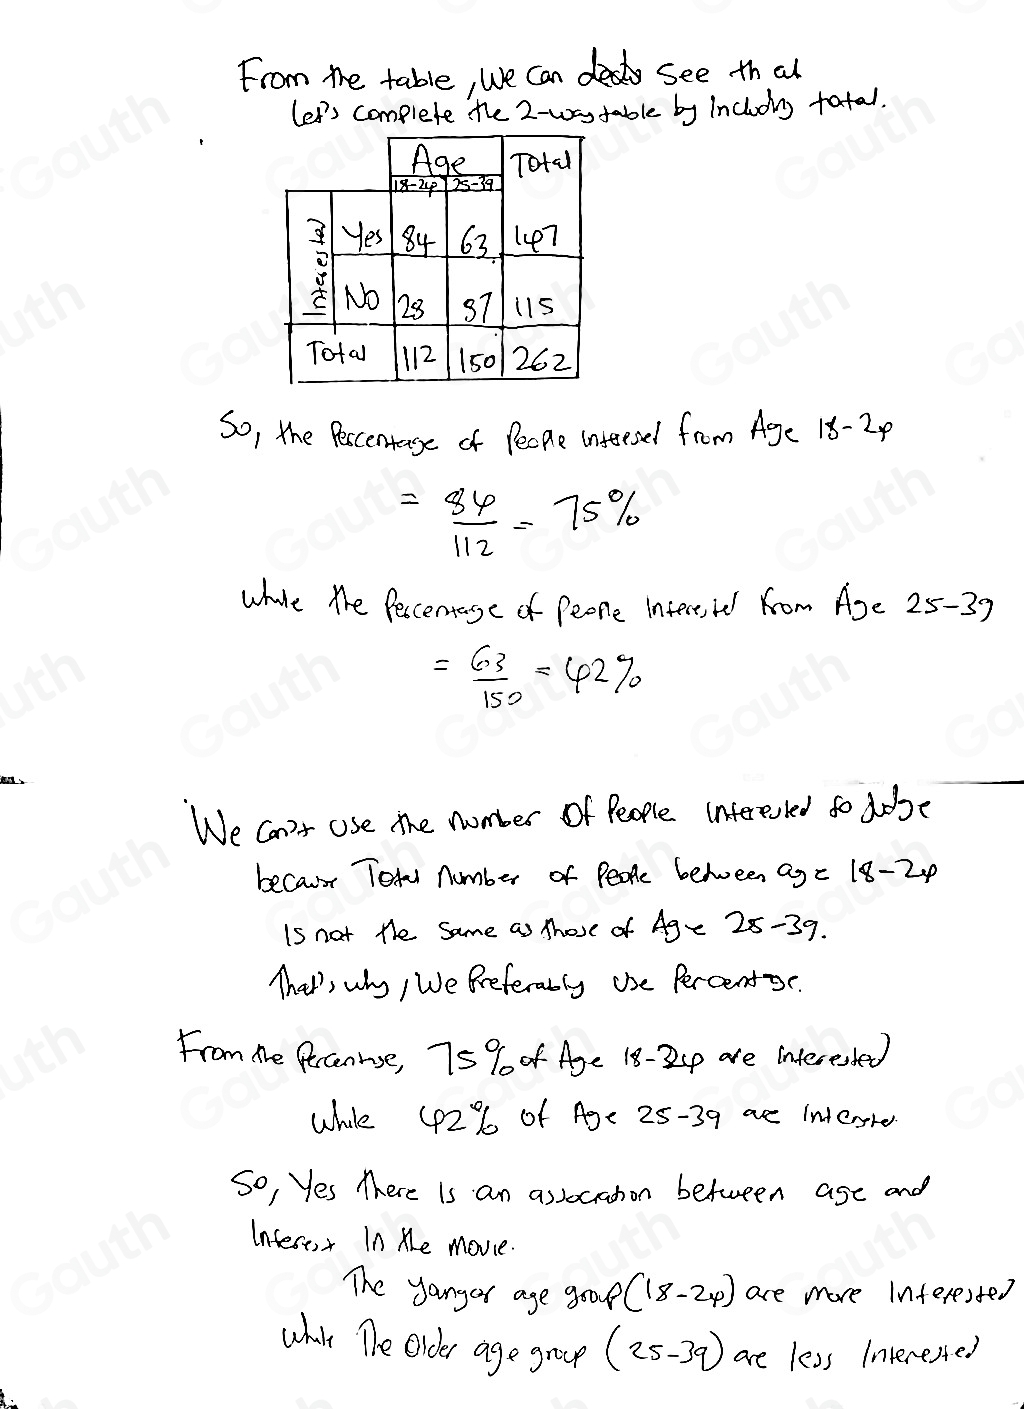 From the table, We can see that
Let's complete the 2-way table by Including total.
Age Total
18-24 25-39
Interested Yes 84 63 147
No 28 87 115
Total 112 150 262
So, the Percentage of People interested from Age 18-24
= 84/112 = 75%
while the Percentage of People Interested from Age 25-39
= 63/150 = 42%
We can't use the number Of People interested to judge
because Total number of People between age 18-24
Is not the same as those of Age 25-39.
That's why, We Preferably use Percentage.
From the Percentage, 75% of Age 18-24 are interested
while 42% of Age 25-39 are Interested.
So, Yes there Is an association between age and
Interest In the movie.
The yanger age group (18-24) are more Interested
while The Older age group (25-39) are less Interested